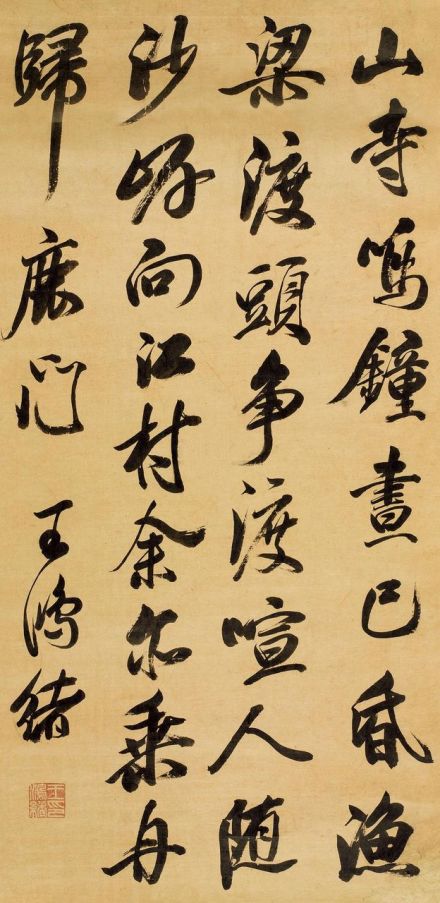 山寺鳴鐘晝已昏漁
梁渡頭爭渡喧人隨
沙岸向江村余亦乘舟
歸鹿門 王鴻緒
王印鴻緒